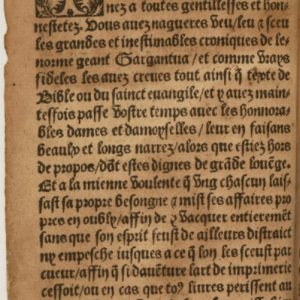 nez a toutes gentillesses et hon
nestetez. Vous auez nagueres veu/leu & sceu
les grandes et inestimables croniques de le-
norme geant Gargantua/ et comme vrays
fideles les auez creues tout ainsi q̃ texte de
Bible ou du sainct euangile/ et y auez main-
tesfois passe vostre temps auec les honnora-
bles dames et damoyselles/ leur en faisans
beaulx et longs narrez/alors que estiez hors
de propos/dõt estes dignes de grãde louẽge.
Et a la mienne voulente q̃ vng chascun lais-
sast sa propre besongne & mist ses affaires pro
pres en oubly/affin de y vacquer entierement
sans que son esprit feust de ailleurs distraict
ny empesche iusques a ce q̃ lon les sceust par
cueur/affin q̃ si dauẽture lart de imprimerie
cessoit/ou en cas que tous liures perissent au